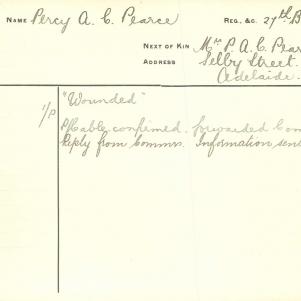 NAME Percy A. C. Pearce REG. &C. 27th B
NEXT OF KIN Mr P. A. C. Pear
ADDRESS Selby Street.
Adelaide.
1/P "Wounded"
P/Cable confirmed. forwarded Com
Reply from Commr. Information sen